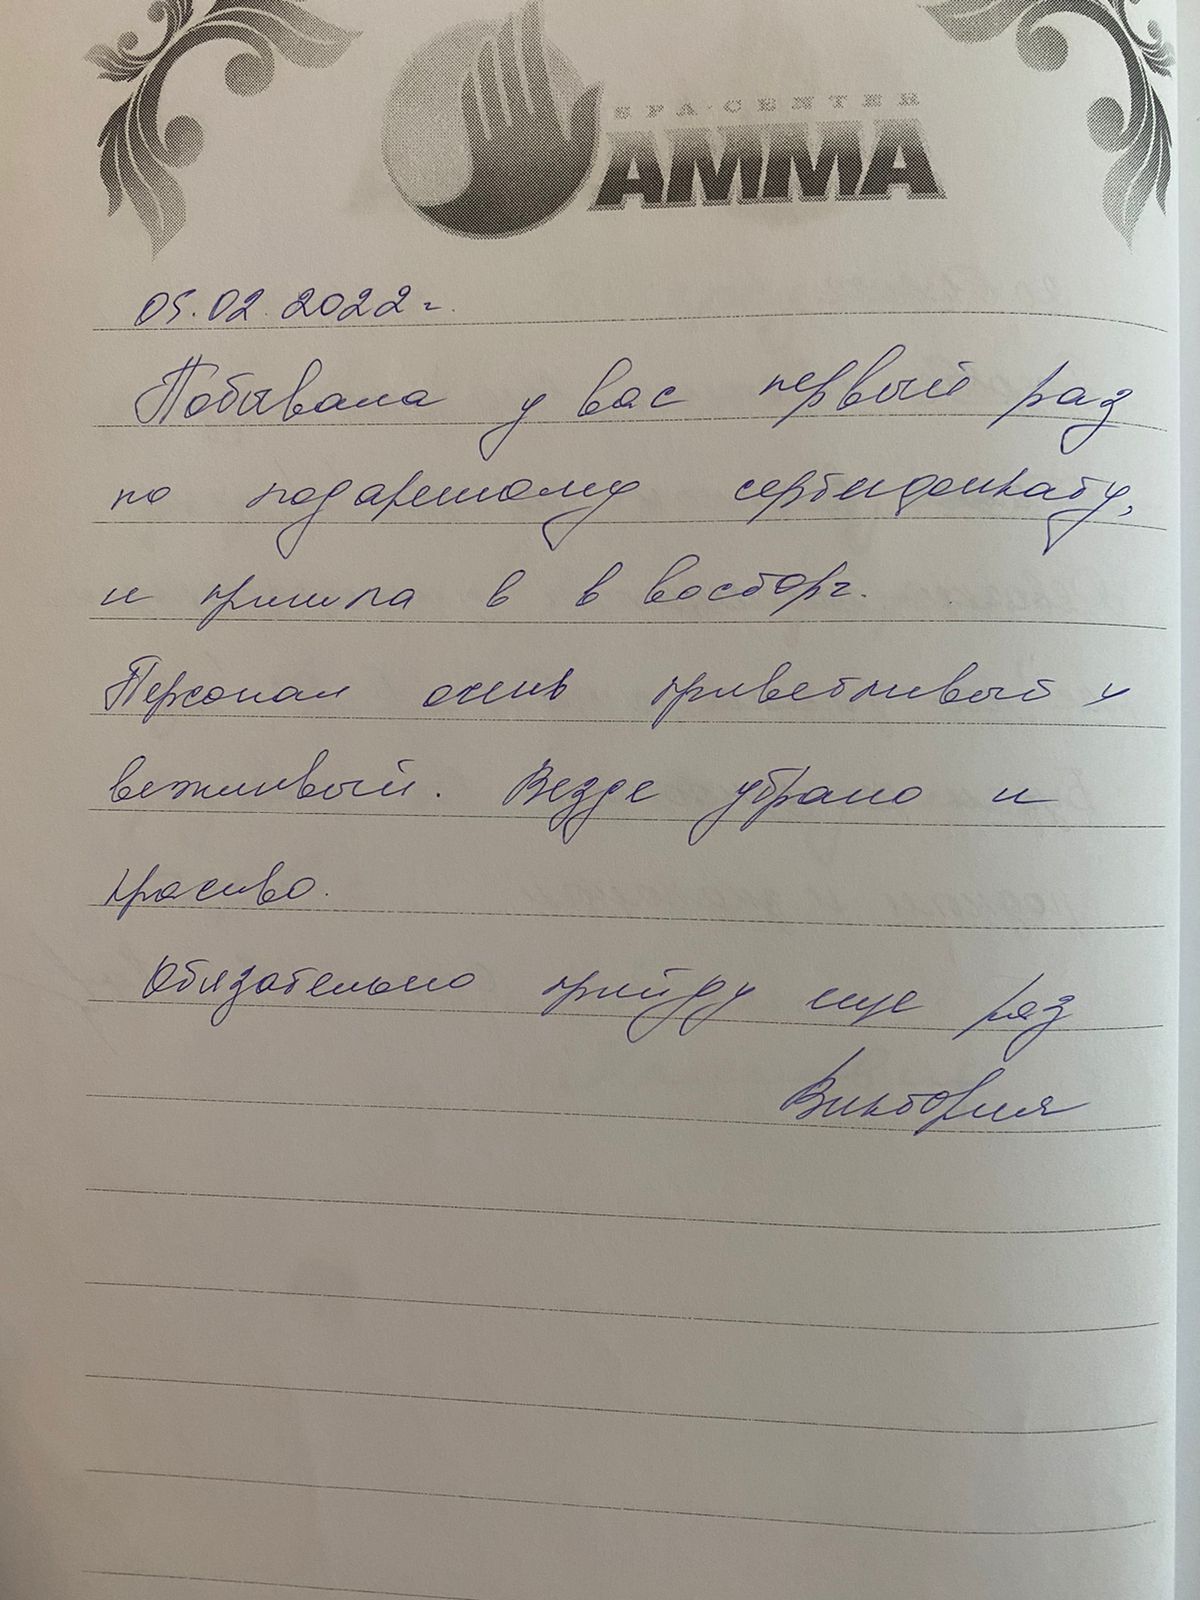 SPA-CENTER
AMMA
05.02.2022г.
Побывала у вас первый раз
по подаренному сертификату,
и пришла в в восторг.
Персонал очень приветливый и
вежливый. Везде убрано и
красиво.
Обязательно прийду еще раз
Виктория